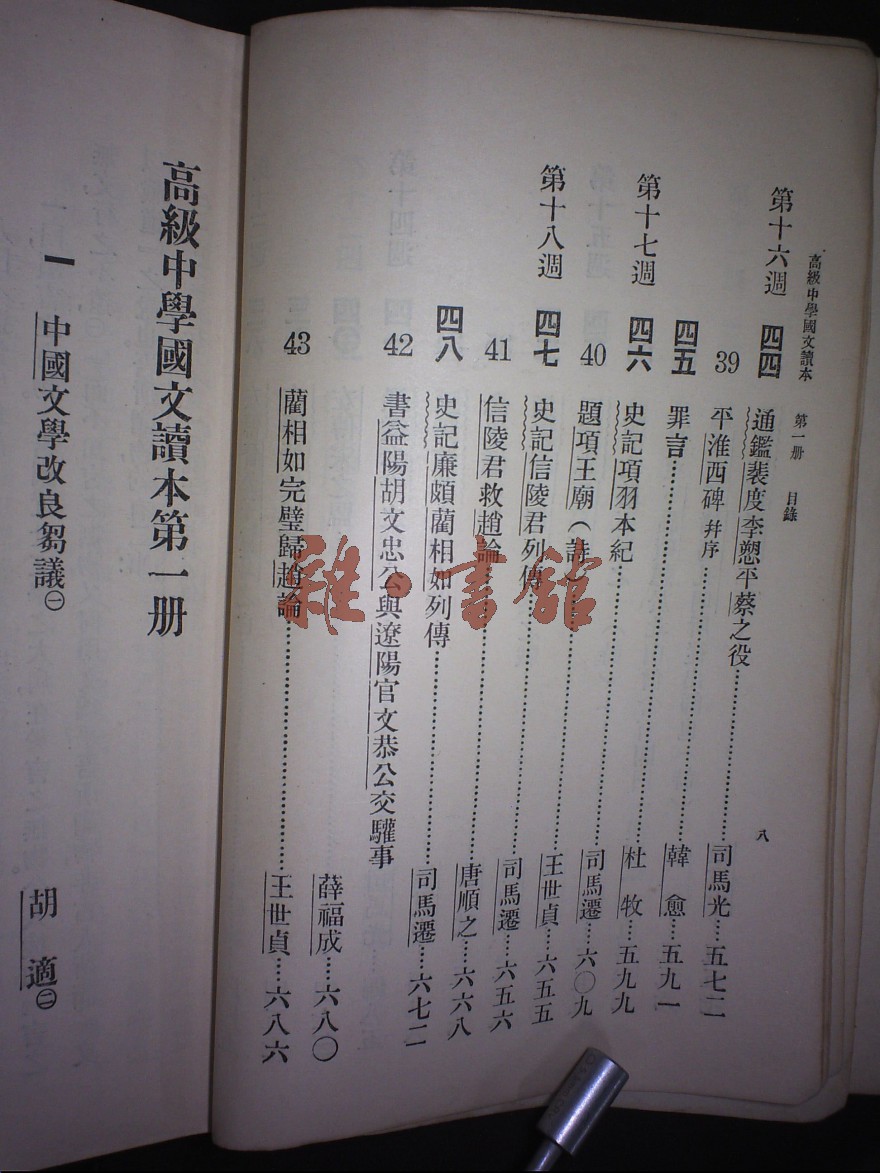 高級中學國文讀本 第一册 目錄
八
第十六週 四四 通鑑裴度李愬平蔡之役……司馬光……五七二
39 平淮西碑 幷序……韓愈……五九一
四五 罪言……杜牧……五九九
第十七週 四六 史記項羽本紀……司馬遷……六〇九
40 題項王廟(詩)……王世貞……六五五
四七 史記信陵君列傳……司馬遷……六五六
第十八週
41 信陵君救趙論……唐順之……六六八
四八 史記廉頗藺相如列傳……司馬遷……六七二
42 書益陽胡文忠公與遼陽官文恭公交驩事
薛福成……六八〇
43 藺相如完璧歸趙論……王世貞……六八六
雜·書館
高級中學國文讀本第一册
一 中國文學改良芻議㊀ 胡適㊁